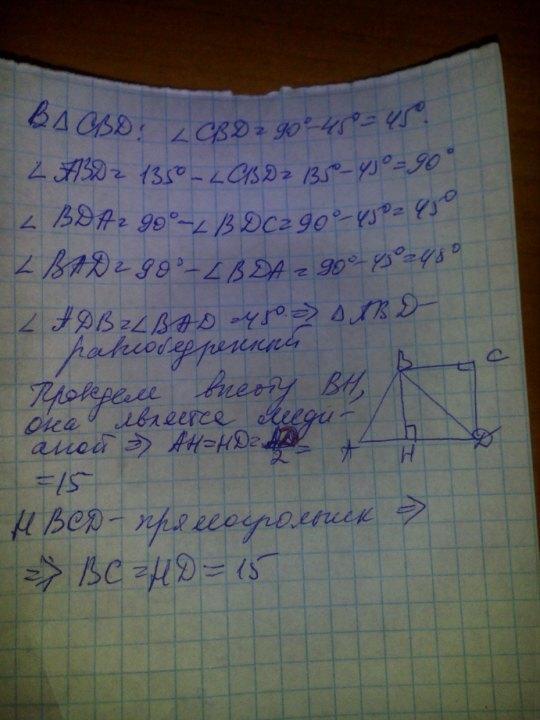 В △ CBD: ∠CBD = 90° - 45° = 45°.
∠ ABD = 135° - ∠CBD = 135° - 45° = 90°
∠ BDA = 90° - ∠BDC = 90° - 45° = 45°
∠ BAD = 90° - ∠BDA = 90° - 45° = 45°
∠ ADB = ∠BAD = 45° ⇒ △ABD -
равнобедренный
Проведем высоту BH,
она является меди-
аной ⇒ AH = HD = AD/2 =
= 15
HBCD - прямоугольник ⇒
⇒ BC = HD = 15
B
C
A
H
D